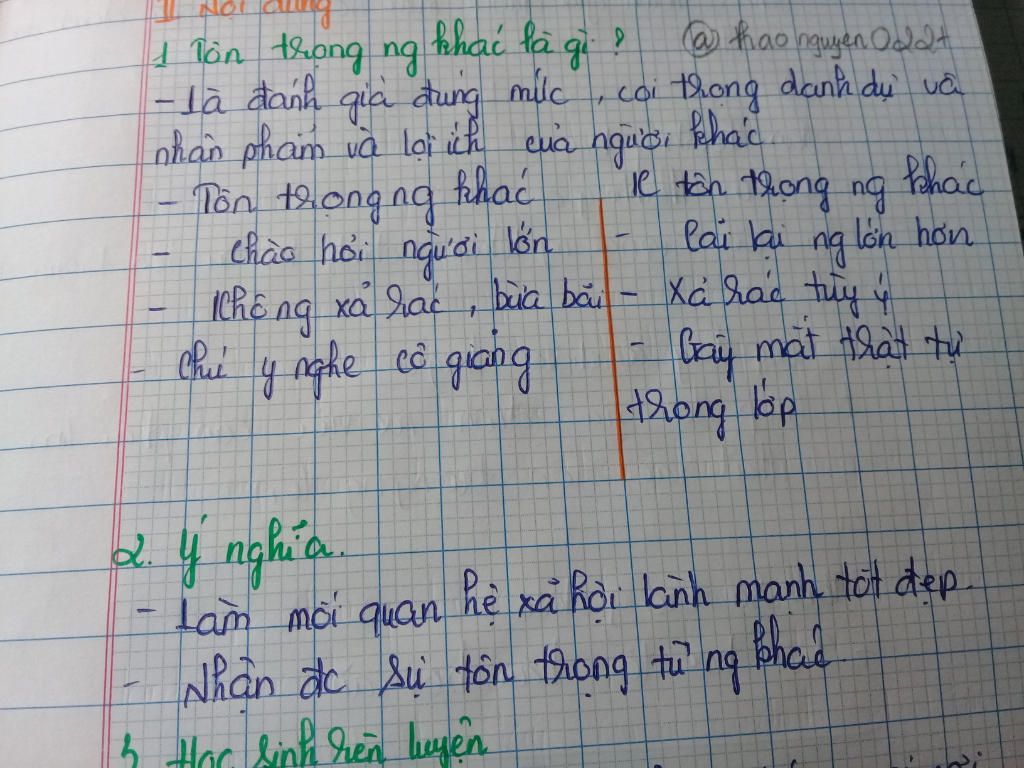 II Nội dung
1 Tôn trọng ng khác là gì ? @thaonguyen0224
- Là đánh giá đúng mức , coi trọng danh dự và
nhân phẩm và lợi ích của người khác
- Tôn trọng ng khác
- chào hỏi người lớn
- Không xả rác , bừa bãi
- Chú ý nghe cô giảng
K tôn trọng ng khác
- Cãi lại ng lớn hơn
- Xả rác tùy ý
- Gây mất trật tự
trong lớp
2. Ý nghĩa.
- Làm mối quan hệ xã hội lành mạnh tốt đẹp.
- Nhận đc sự tôn trọng từ ng khác
3 Học sinh rèn luyện